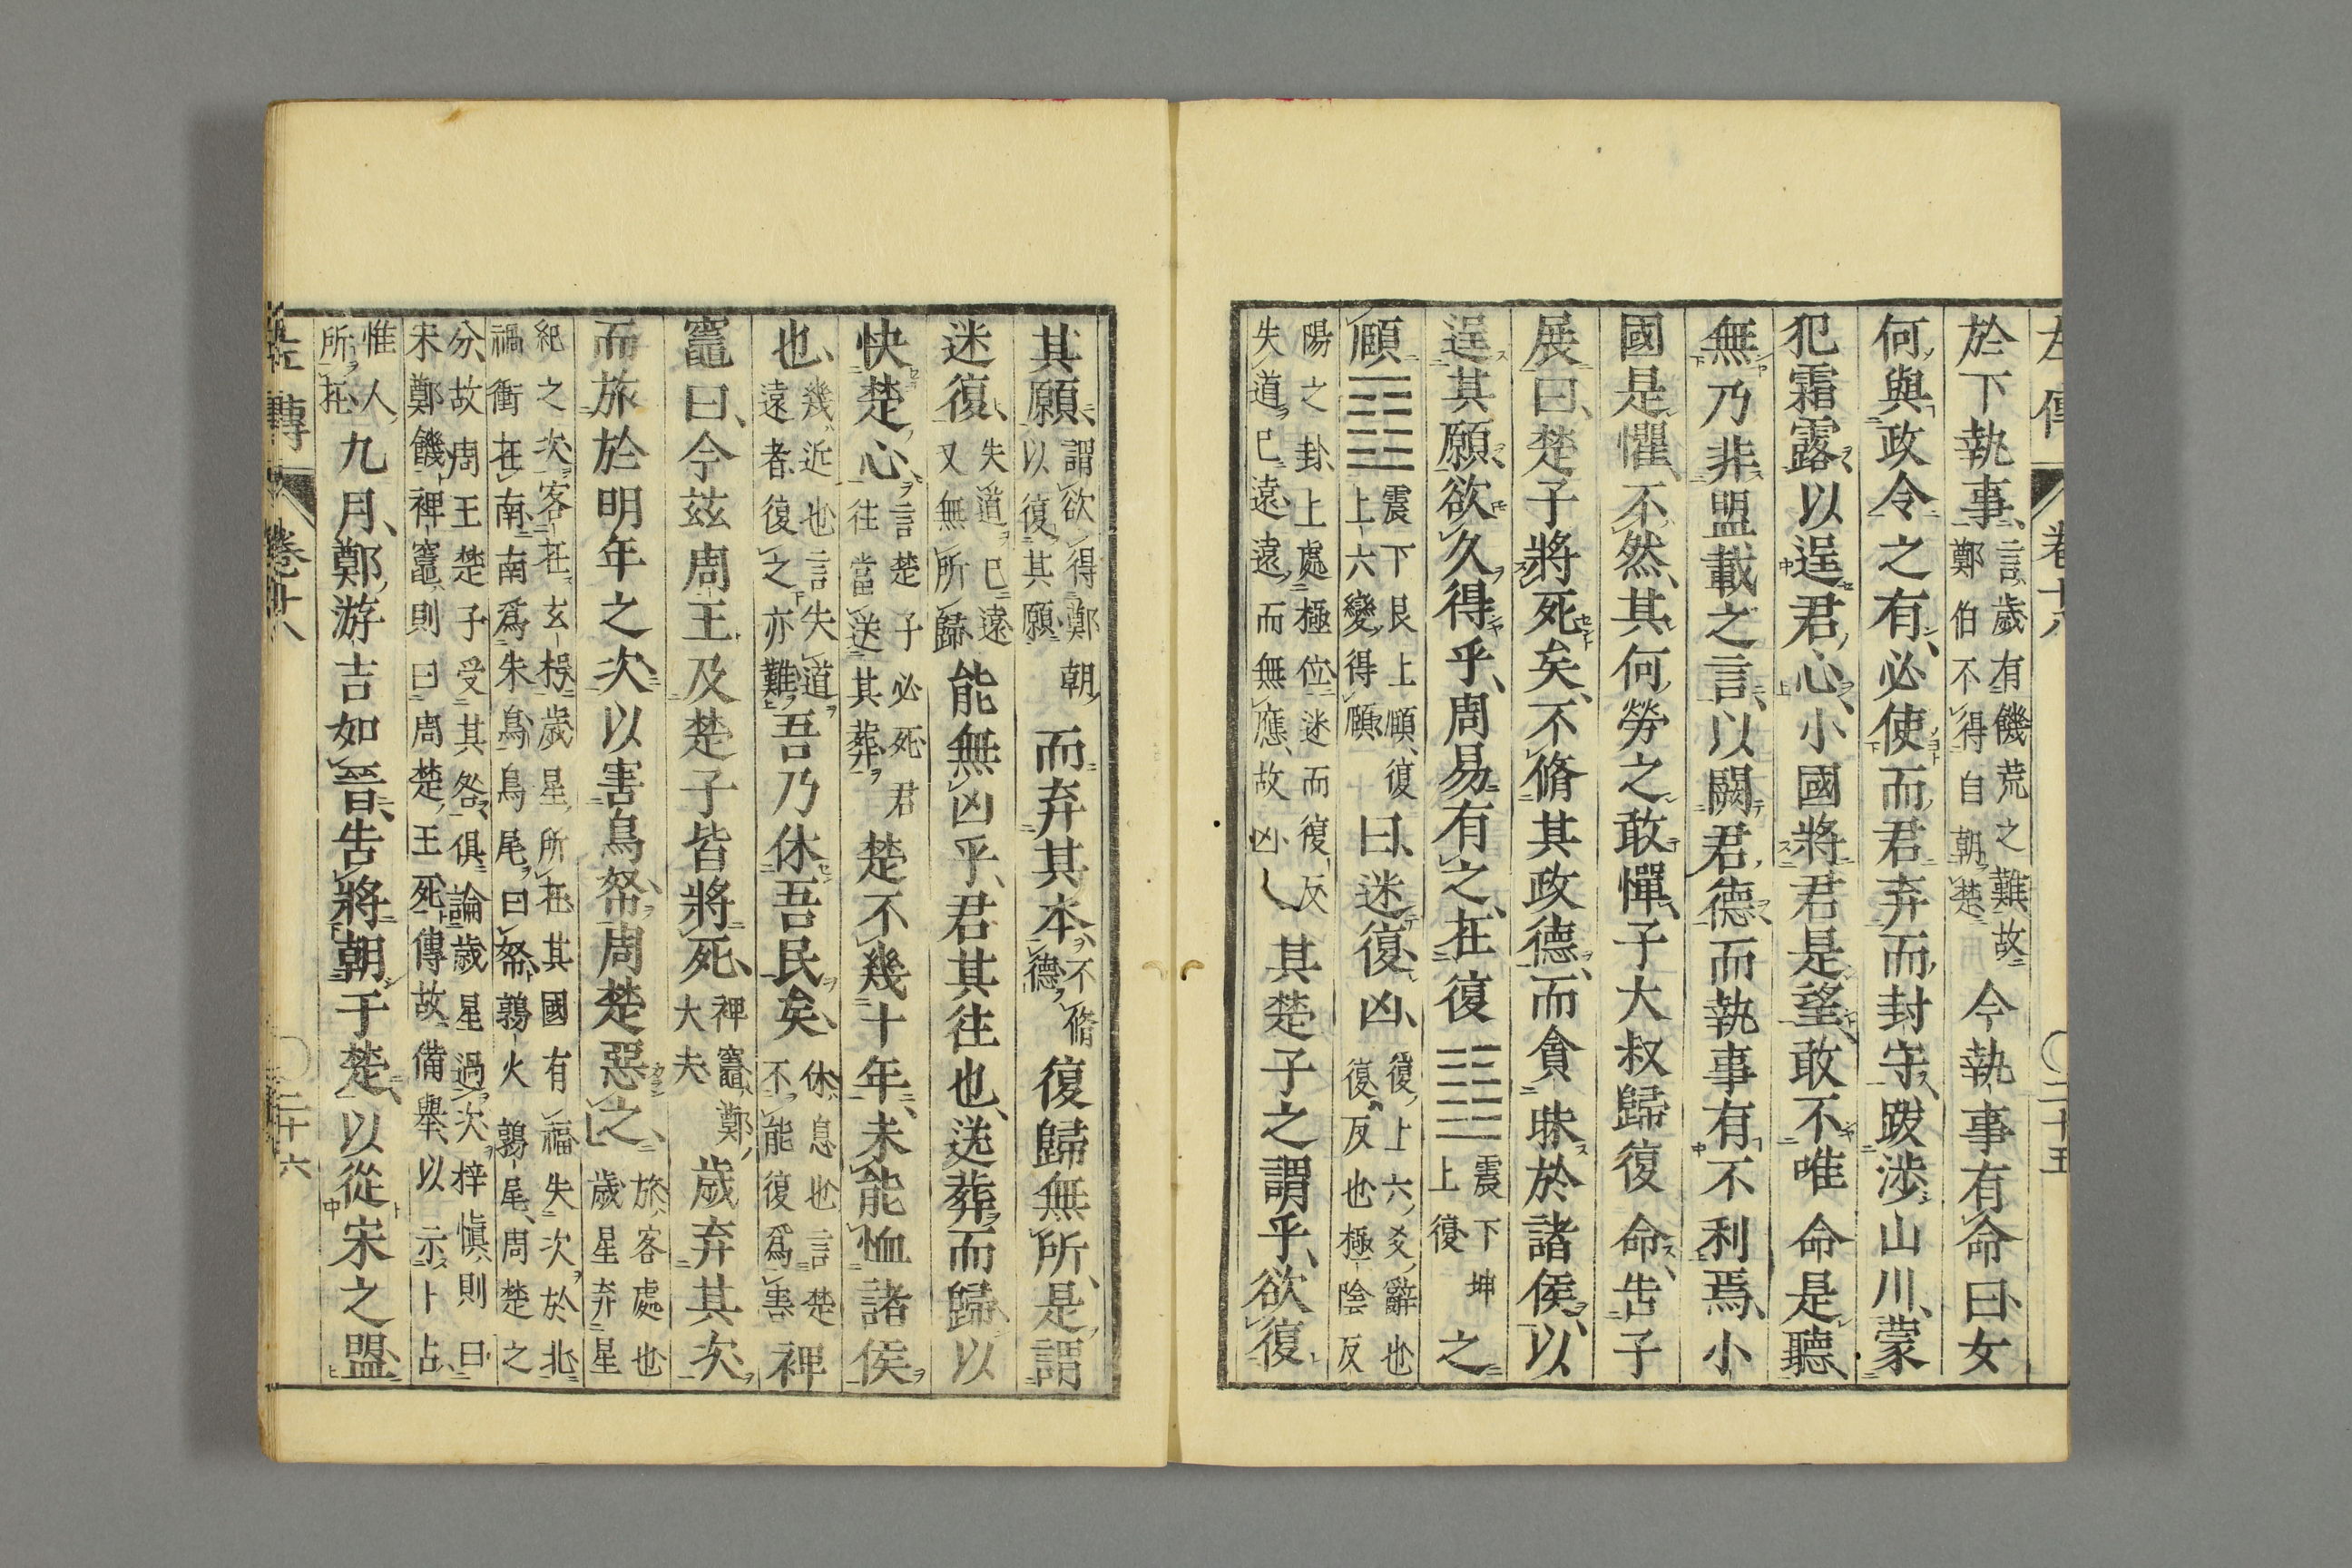 左傳 卷十八 二十五
於下執事、言歲有饑荒之難故鄭伯不得自朝楚今執事有命曰、女
何與政令之有、必使而君弃而封守、跋渉山川、蒙
犯霜露、以逞君心、小國將君是望、敢不唯命是聽、
無乃非盟載之言、以闕君德、而執事有不利焉、小
國是懼、不然、其何勞之敢憚、子大叔歸復命、告子
展曰、楚子將死矣、不脩其政德、而貪昧於諸侯、以
逞其願、欲久得乎、周易有之、在復䷗震下坤上復之
頤䷚震下艮上頤、復上六變得頤曰、迷復、凶、復上六爻辭也復反也極陰反
陽之卦、上處極位迷而復、反失道已遠、遠而無應、故凶其楚子之謂乎、欲復
其願、謂欲得鄭朝以復其願而弃其本、不脩德復歸無所、是謂
迷復、失道已遠又無所歸能無凶乎、君其往也、送葬而歸、以
快楚心、言楚子必死君往當送其葬楚不幾十年、未能恤諸侯
也、幾近也言失道遠者復之亦難吾乃休吾民矣、休息也言楚不能復爲害裨
竈曰、今茲周王及楚子皆將死、裨竈鄭大夫歲弃其次、
而旅於明年之次、以害鳥帑、周楚惡之、旅客處也歲星弃星
紀之次、客在玄枵歲星所在其國有福失次於北禍衝在南南爲朱鳥鳥尾曰帑鶉火鶉尾、周楚之
分、故周王楚子受其咎俱論歲星過次梓愼則曰宋鄭饑裨竈則曰周楚王死傳故備舉以示卜占
惟人所在九月、鄭游吉如晉、告將朝于楚、以從宋之盟、
左傳 卷十八 二十六